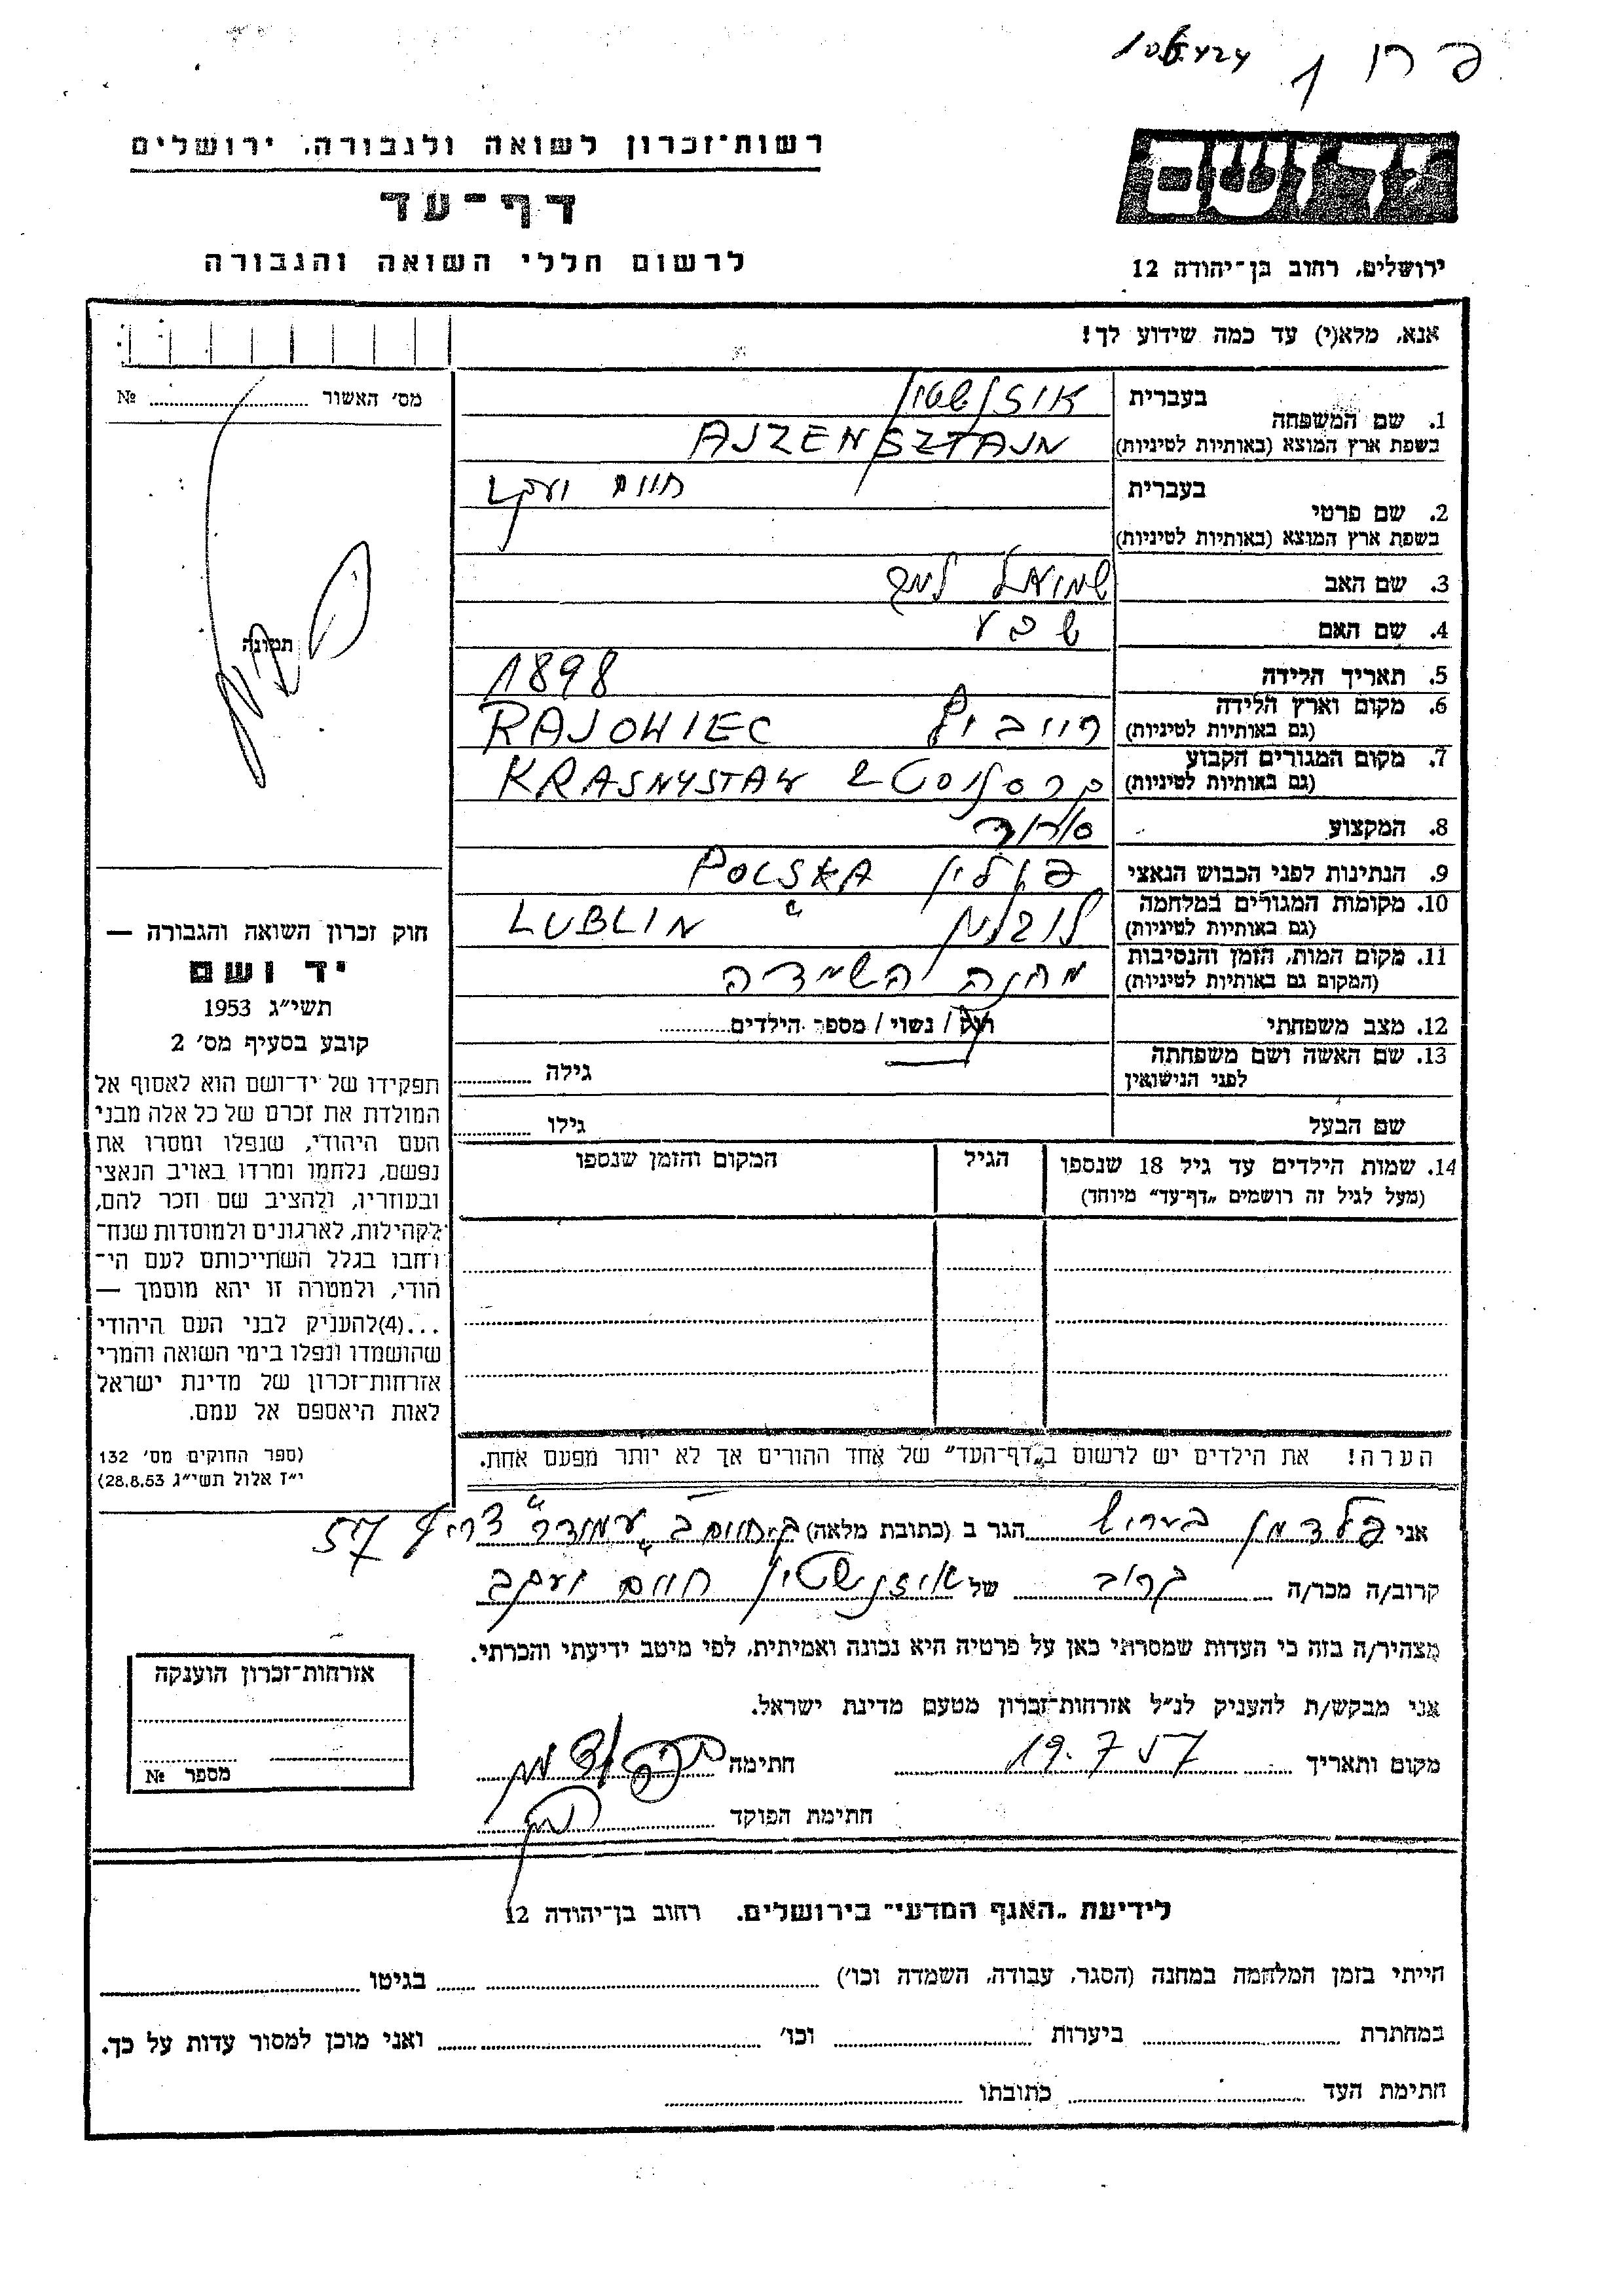 רשות־זכרון לשואה ולגבורה, ירושלים
דף־עד
לרשום חללי השואה והגבורה
ידושם
ירושלים, רחוב בן־יהודה 12
אנא, מלא(י) עד כמה שידוע לך!
מס׳ האשור № 
1. שם המשפחה
בעברית
אייזנשטיין
בשפת ארץ המוצא (באותיות לטיניות)
AJZENSZTAJN
2. שם פרטי
בעברית חיים יעקב
בשפת ארץ המוצא (באותיות לטיניות)
3. שם האב שמואל למך
4. שם האם שבע
5. תאריך הלידה 1898
6. מקום וארץ הלידה
(גם באותיות לטיניות) RAJOWIEC
7. מקום המגורים הקבוע
(גם באותיות לטיניות) KRASNYSTAW
8. המקצוע
9. הנתינות לפני הכבוש הנאצי פולין POLSKA
10. מקומות המגורים במלחמה
(גם באותיות לטיניות) לובלין LUBLIN
11. מקום המות, הזמן והנסיבות
(המקום גם באותיות לטיניות) מחנה השמדה
12. מצב משפחתי רוק / נשוי / מספר הילדים
13. שם האשה ושם משפחתה
לפני הנישואין גילה
שם הבעל גילו
14. שמות הילדים עד גיל 18 שנספו
(מעל לגיל זה רושמים „דף־עד” מיוחד)
הגיל
המקום והזמן שנספו
הערה! את הילדים יש לרשום ב„דף־העד” של אחד ההורים אך לא יותר מפעם אחת.
תמונה
חוק זכרון השואה והגבורה —
יד ושם
תשי״ג 1953
קובע בסעיף מס׳ 2
תפקידו של יד־ושם הוא לאסוף אל
המולדת את זכרם של כל אלה מבני
העם היהודי, שנפלו ומסרו את
נפשם, נלחמו ומרדו באויב הנאצי
ובעוזריו, ולהציב שם וזכר להם,
לקהילות, לארגונים ולמוסדות שנח־
רחבו בגלל השתייכותם לעם הי־
הודי, ולמטרה זו יהא מוסמך —
...(4)להעניק לבני העם היהודי
שהושמדו ונפלו בימי השואה והמרי
אזרחות־זכרון של מדינת ישראל
לאות היאספם אל עמם.
(ספר החוקים מס׳ 132
י״ז אלול תשי״ג 28.8.53)
אני פלדמן הגר ב (כתובת מלאה) 57
קרוב/ה מכר/ה קרוב של אייזנשטיין חיים יעקב
מצהיר/ה בזה כי העדות שמסרתי כאן על פרטיה היא נכונה ואמיתית, לפי מיטב ידיעתי והכרתי.
אני מבקש/ת להעניק לנ״ל אזרחות־זכרון מטעם מדינת ישראל.
מקום ותאריך 19.7.57 חתימה
חתימת הפוקד
אזרחות־זכרון הוענקה
מספר №
לידיעת „האגף המדעי” בירושלים, רחוב בן־יהודה 12
הייתי בזמן המלחמה במחנה (הסגר, עבודה, השמדה וכו׳) בגיטו
במחתרת ביערות וכו׳ ואני מוכן למסור עדות על כך.
חתימת העד כתובתו